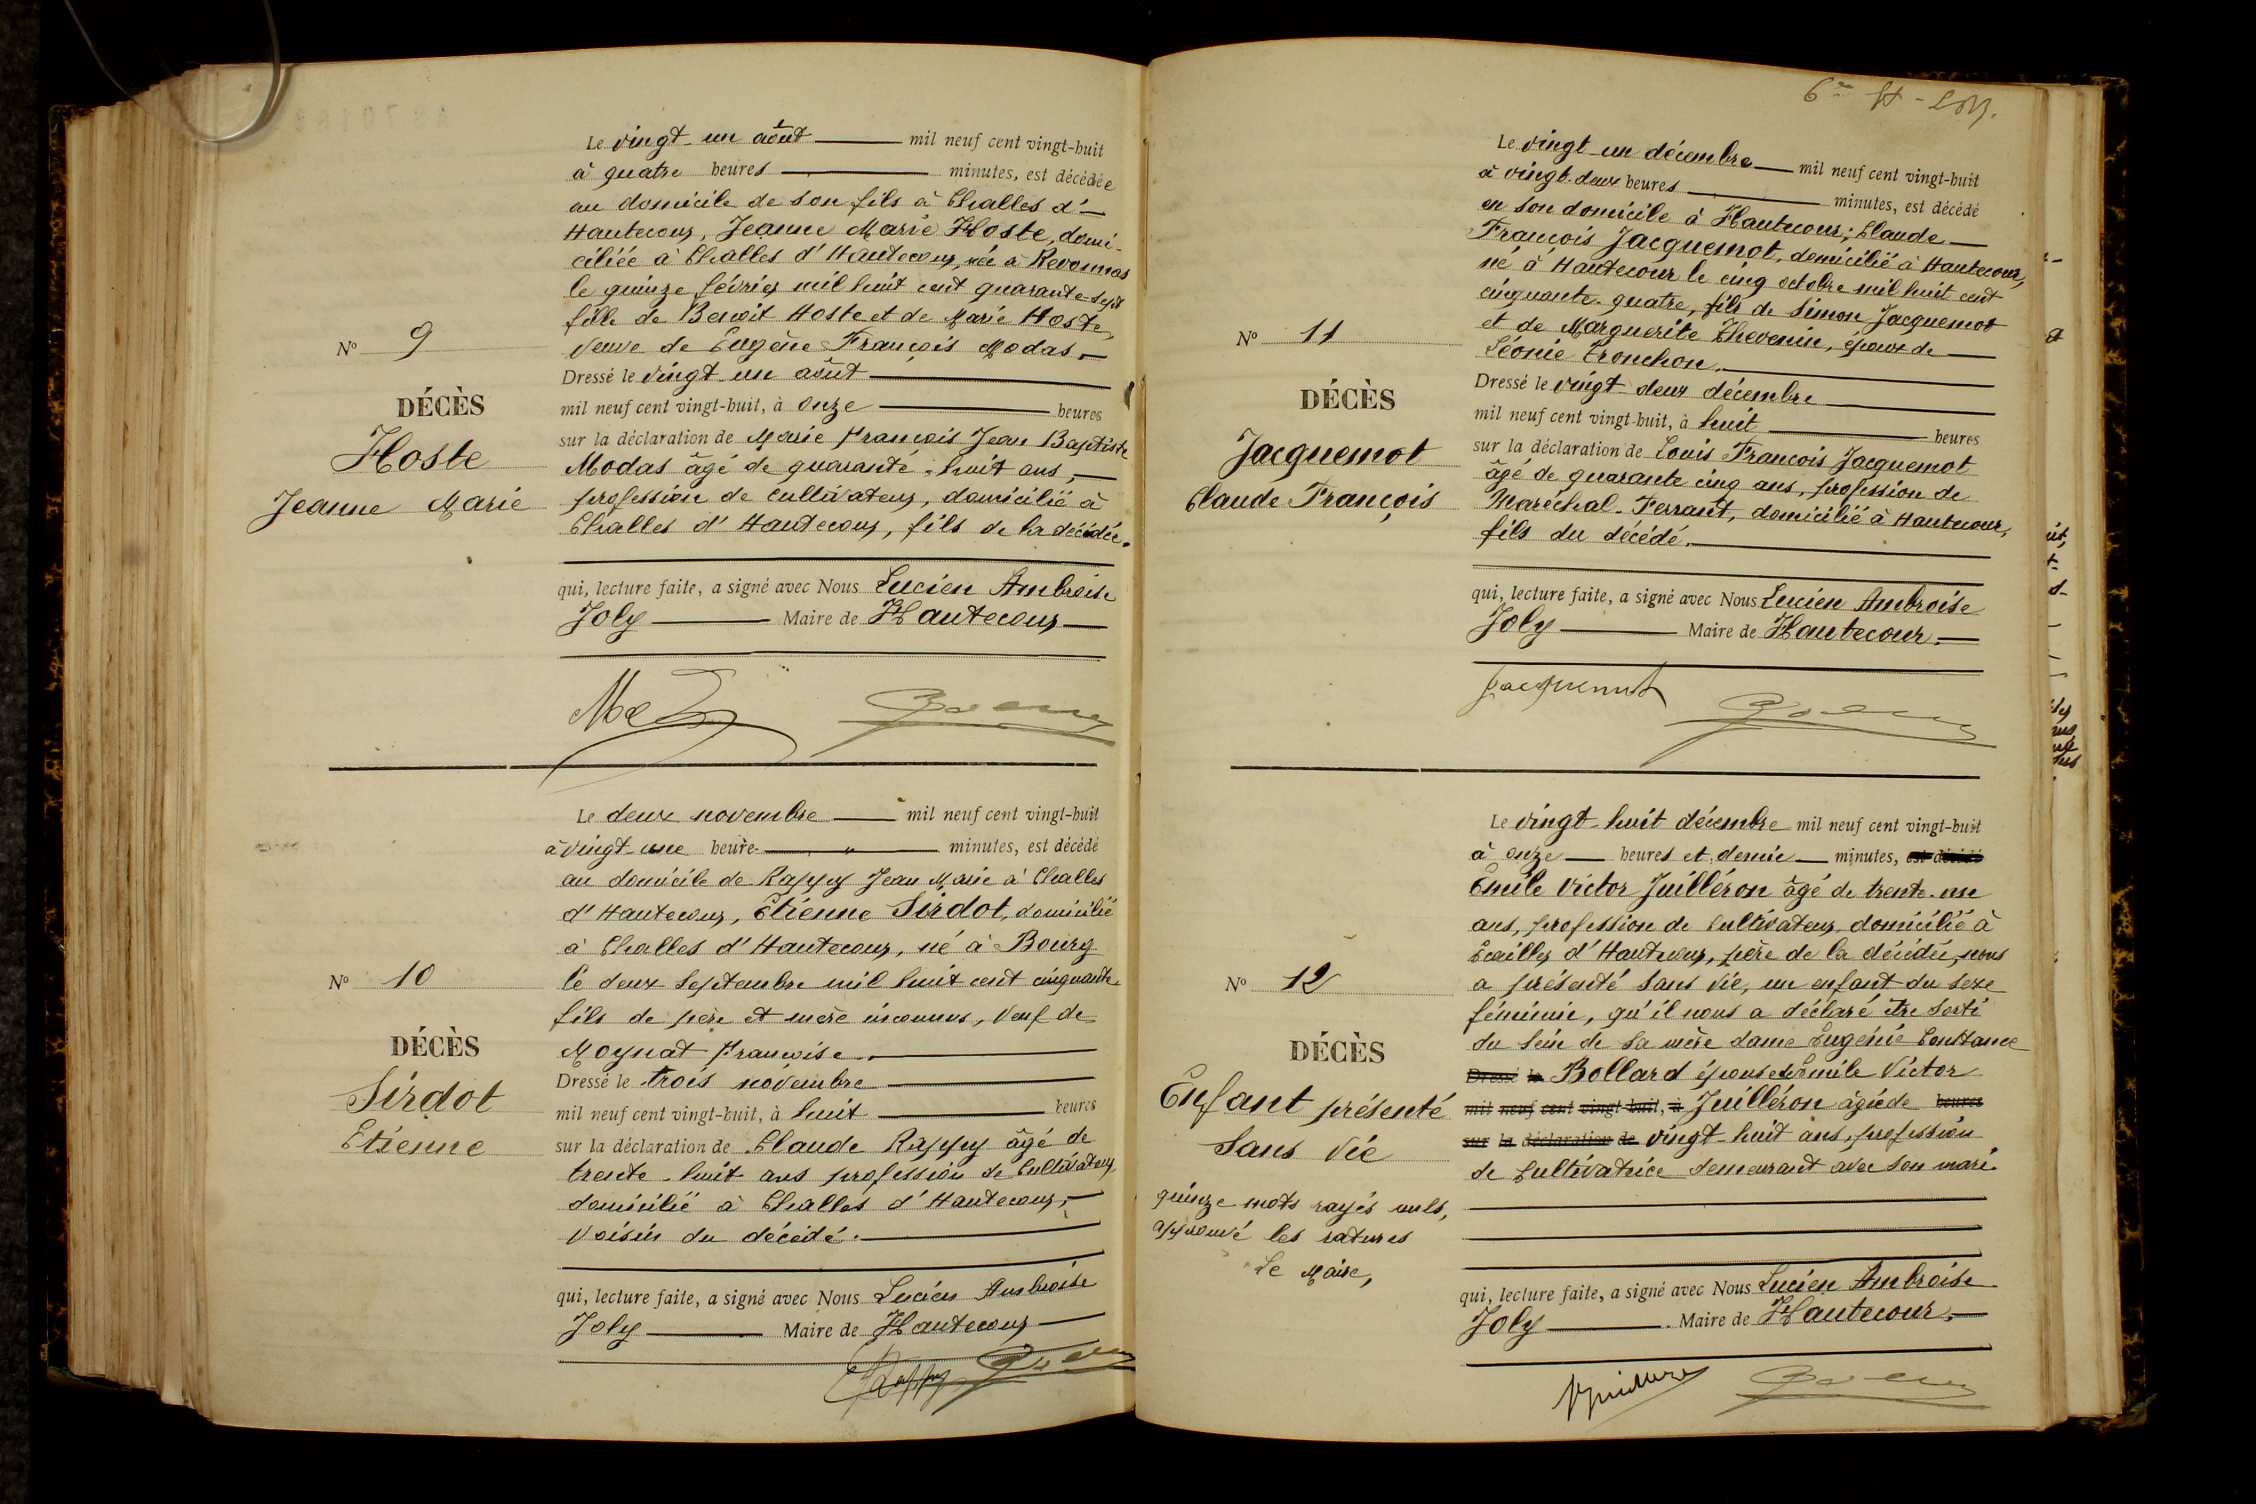 Le vingt-un août mil neuf cent vingt-huit
à quatre heures minutes, est décédée
au domicile de son fils à Challes d'
Hautecour, Jeanne Marie Hoste, domi-
ciliée à Challes d'Hautecour, née à Revonnas
le quinze février mil huit cent quarante-sept
fille de Benoit Hoste et de Marie Hoste,
Veuve de Eugène François Modas.
N° 9
DÉCÈS
Hoste
Jeanne Marie
Dressé le vingt-un août
mil neuf cent vingt-huit, à onze heures
sur la déclaration de Marie François Jean Baptiste
Modas âgé de quarante-huit ans,
profession de cultivateur, domicilié à
Challes d'Hautecour, fils de la décédée.
qui, lecture faite, a signé avec Nous Lucien Ambroise
Joly Maire de Hautecour
Le deux novembre mil neuf cent vingt-huit
à vingt-une heure - " minutes, est décédé
au domicile de Rappy Jean Marie à Challes
d'Hautecour, Etienne Sirdot, domicilié
à Challes d'Hautecour, né à Bourg
le deux Septembre mil huit cent cinquante
fils de père et mère inconnus, Veuf de
Moynat Françoise.
N° 10
DÉCÈS
Sirdot
Etienne
Dressé le trois novembre
mil neuf cent vingt-huit, à huit heures
sur la déclaration de Claude Rappy âgé de
trente-huit ans profession de Cultivateur
domicilié à Challes d'Hautecour,
Voisin du décédé.
qui, lecture faite, a signé avec Nous Lucien Ambroise
Joly Maire de Hautecour
Rappy
Le vingt-un décembre mil neuf cent vingt-huit
à vingt-deux heures minutes, est décédé
en son domicile à Hautecour; Claude
François Jacquemot, domicilié à Hautecour,
né à Hautecour le cinq octobre mil huit cent
cinquante-quatre, fils de Simon Jacquemot
et de Marguerite Thevenin, époux de
Léonie Tronchon.
N° 11
DÉCÈS
Jacquemot
Claude François
Dressé le vingt-deux décembre
mil neuf cent vingt-huit, à huit heures
sur la déclaration de Louis François Jacquemot
âgé de quarante cinq ans, profession de
Maréchal-Ferrant, domicilié à Hautecour,
fils du décédé.
qui, lecture faite, a signé avec Nous Lucien Ambroise
Joly Maire de Hautecour.
Jacquemot
Le vingt-huit décembre mil neuf cent vingt-huit
à onze heures et demie minutes, est décédé
Emile Victor Juilléron âgé de trente-un
ans, profession de Cultivateur, domicilié à
d'Hautecour, père de la décédée, nous
a présenté Sans Vie, un enfant du sexe
féminin, qu'il nous a déclaré être Sorti
du Sein de Sa mère dame Eugénie Constance
Dressé le Bollard épouse de Emile Victor
mil neuf cent vingt-huit, à Juilléron âgée de heures
sur la déclaration de vingt-huit ans, profession
de Cultivatrice demeurant avec son mari.
N° 12
DÉCÈS
Enfant présenté
Sans Vie
quinze mots rayés nuls,
approuvé les ratures
Le Maire,
qui, lecture faite, a signé avec Nous Lucien Ambroise
Joly . Maire de Hautecour.